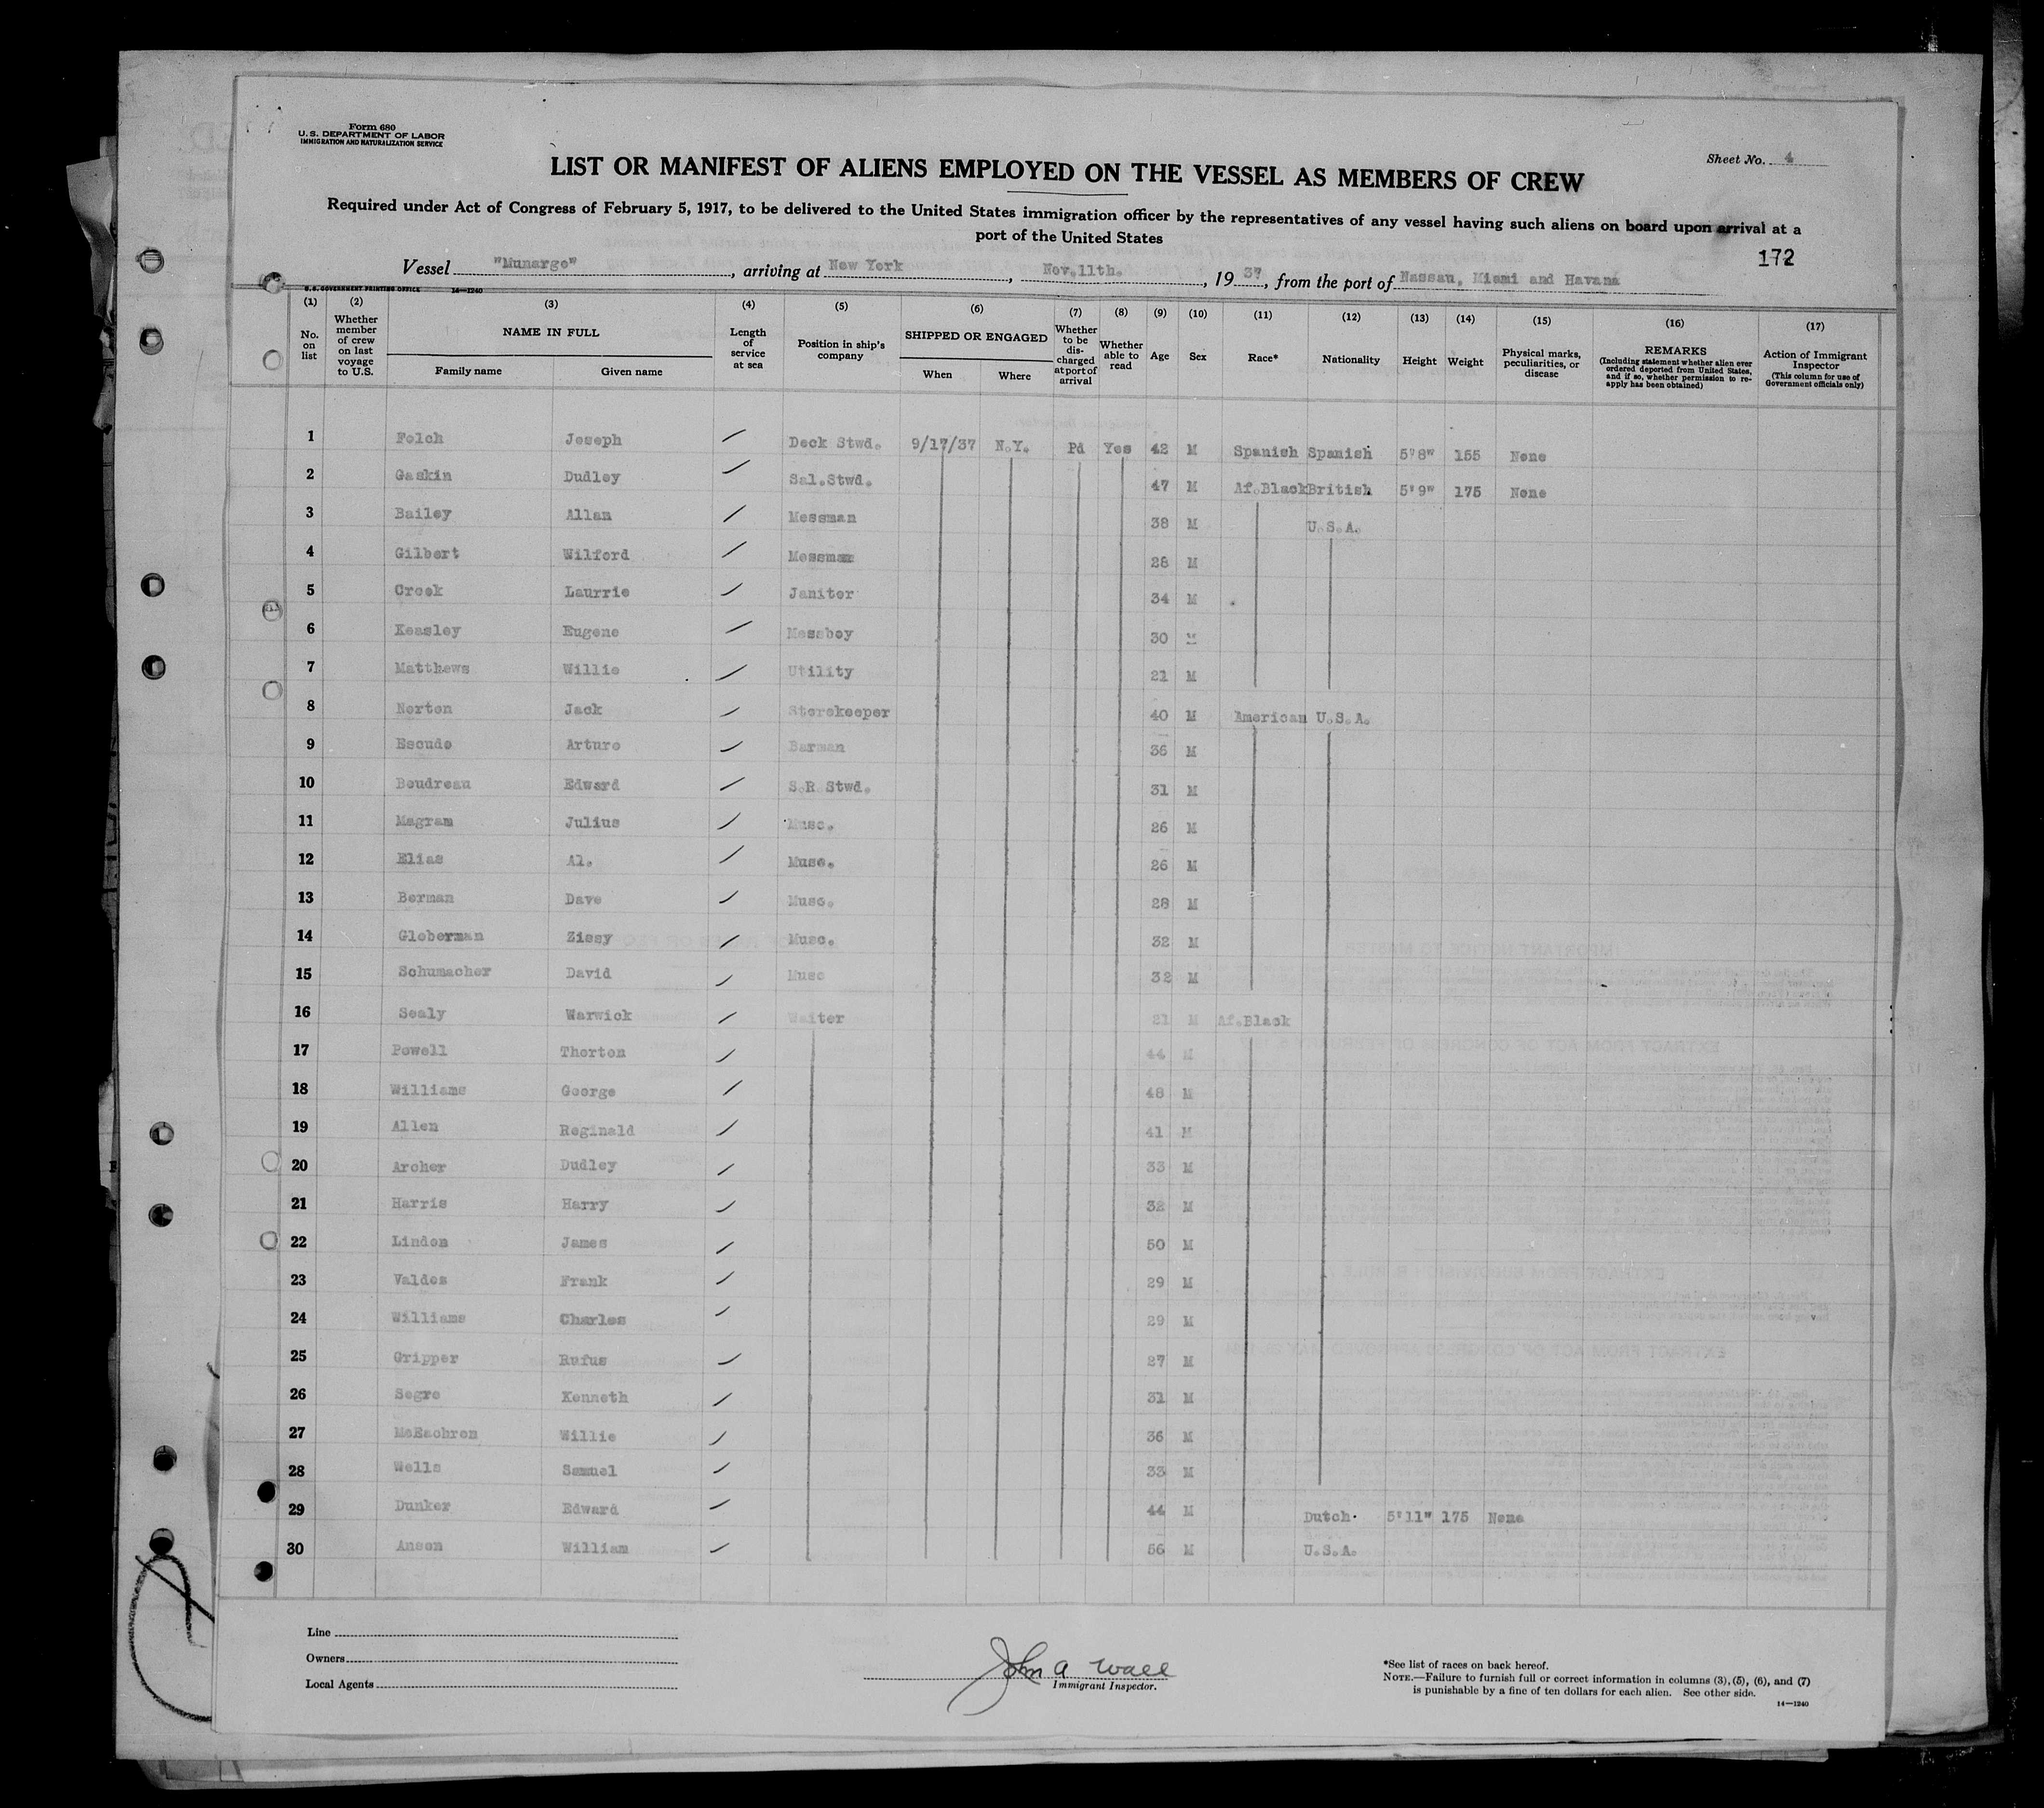 Form 680
U. S. DEPARTMENT OF LABOR
IMMIGRATION AND NATURALIZATION SERVICE
Sheet No. 4
LIST OR MANIFEST OF ALIENS EMPLOYED ON THE VESSEL AS MEMBERS OF CREW
Required under Act of Congress of February 5, 1917, to be delivered to the United States immigration officer by the representatives of any vessel having such aliens on board upon arrival at a
port of the United States
172
Vessel "Munargo", arriving at New York, Nov.11th., 1937, from the port of Nassau, Miami and Havana
U.S. GOVERNMENT PRINTING OFFICE 14—1240
(1) (2) (3) (4) (5) (6) (7) (8) (9) (10) (11) (12) (13) (14) (15) (16) (17)
No. on list
Whether member of crew on last voyage to U.S.
NAME IN FULL
Family name
Given name
Length of service at sea
Position in ship's company
SHIPPED OR ENGAGED
When
Where
Whether to be discharged at port of arrival
Whether able to read
Age
Sex
Race*
Nationality
Height
Weight
Physical marks, peculiarities, or disease
REMARKS
(Including statement whether alien ever ordered deported from United States, and if so, whether permission to reapply has been obtained)
Action of Immigrant Inspector
(This column for use of Government officials only)
1 Folch Joseph Deck Stwd. 9/17/37 N.Y. Pd Yes 42 M Spanish Spanish 5'8" 155 None
2 Gaskin Dudley Sal.Stwd. 47 M Af.Black British 5'9" 175 None
3 Bailey Allan Messman 38 M U.S.A.
4 Gilbert Wilford Messman 28 M
5 Crook Laurrie Janitor 34 M
6 Keasley Eugene Messboy 30 M
7 Matthews Willie Utility 21 M
8 Norton Jack Storekeeper 40 M American U.S.A.
9 Escudo Arturo Barman 36 M
10 Boudreau Edward S.R.Stwd. 31 M
11 Magram Julius Musc. 26 M
12 Elias Al. Musc. 26 M
13 Berman Dave Musc. 28 M
14 Globerman Zissy Musc. 32 M
15 Schumacher David Musc 32 M
16 Sealy Warwick Waiter 21 M Af.Black
17 Powell Thorton 44 M
18 Williams George 48 M
19 Allen Reginald 41 M
20 Archer Dudley 33 M
21 Harris Harry 32 M
22 Lindon James 50 M
23 Valdes Frank 29 M
24 Williams Charles 29 M
25 Gripper Rufus 27 M
26 Segre Kenneth 31 M
27 McEachron Willie 36 M
28 Wells Samuel 33 M
29 Dunker Edward 44 M Dutch 5'11" 175 None
30 Anson William 56 M U.S.A.
Line
Owners
Local Agents
John A Wall
Immigrant Inspector.
*See list of races on back hereof.
NOTE.—Failure to furnish full or correct information in columns (3), (5), (6), and (7)
is punishable by a fine of ten dollars for each alien. See other side.
14—1240